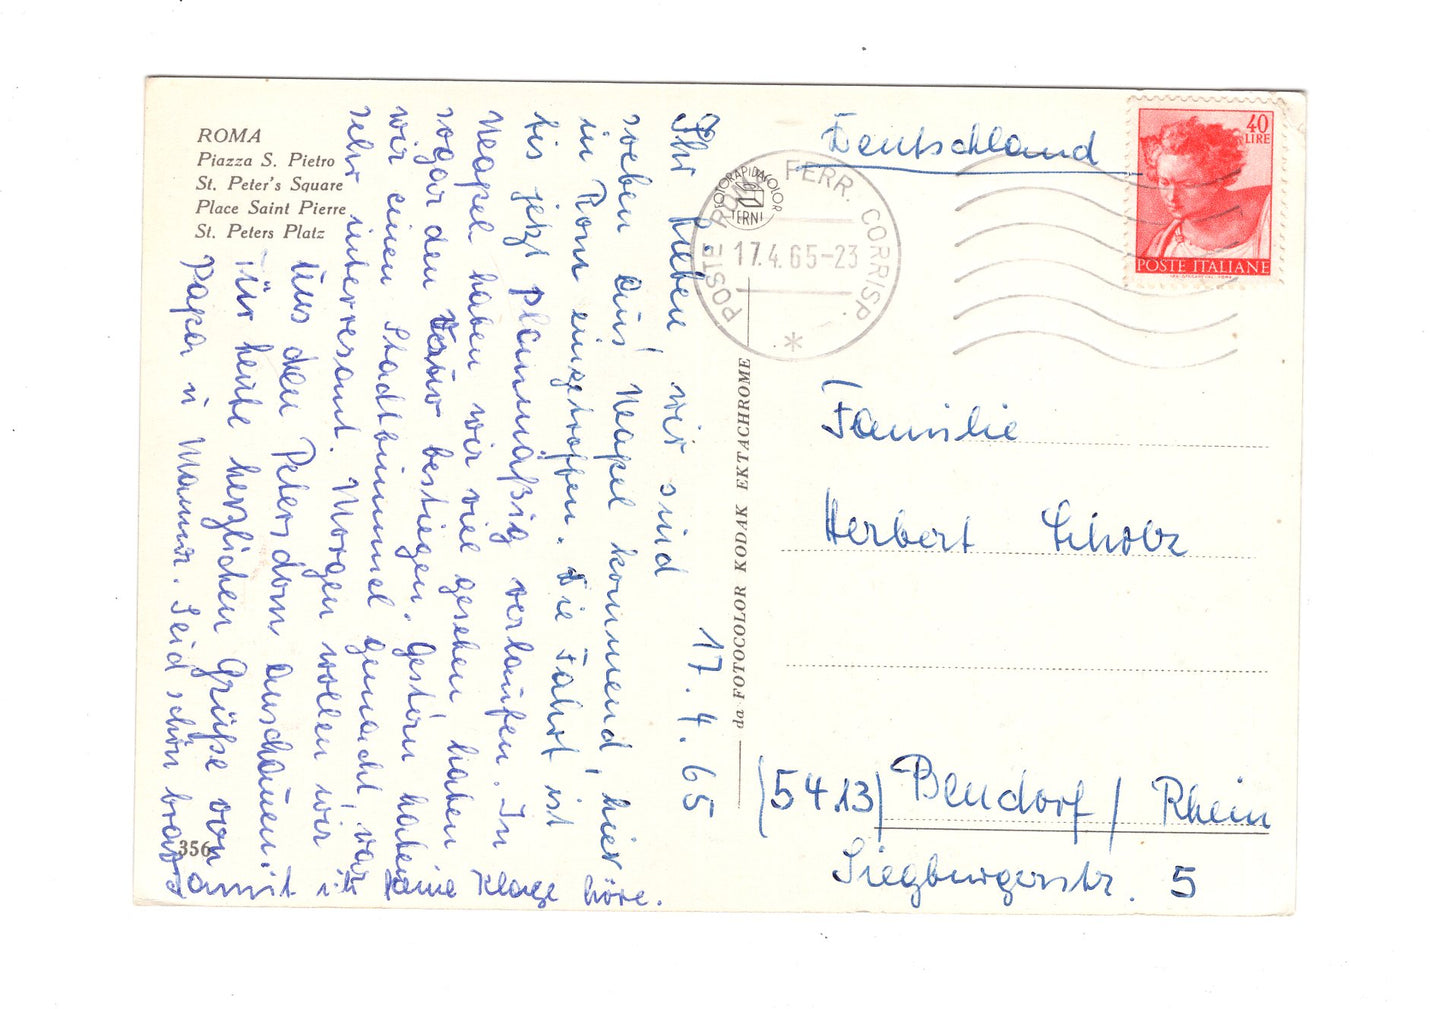 ROMA
Piazza S. Pietro
St. Peter's Square
Place Saint Pierre
St. Peters Platz
17.4.65
Ihr Lieben! wir sind
soeben aus Neapel kommend, hier
in Rom eingetroffen. Die Fahrt ist
bis jetzt planmäßig verlaufen. In
Neapel haben wir viel gesehen haben
sogar den Vesuv bestiegen. gestern haben
wir einen Stadtbummel gemacht, war
sehr interresant. Morgen wollen wir
uns den Petersdom anschauen.
Für heute herzlichen Grüße von
Papa u Mama. Seid schön brav
damit ich keine Klage höre.
356
da FOTOCOLOR KODAK EKTACHROME
FOTORAPIDACOLOR
TERNI
POSTE ROMA FERR. CORRISP.
17.4.65-23
40
LIRE
POSTE ITALIANE
Deutschland
Familie
Herbert Scholz
(5413) Bendorf / Rhein
Siegburgerstr. 5